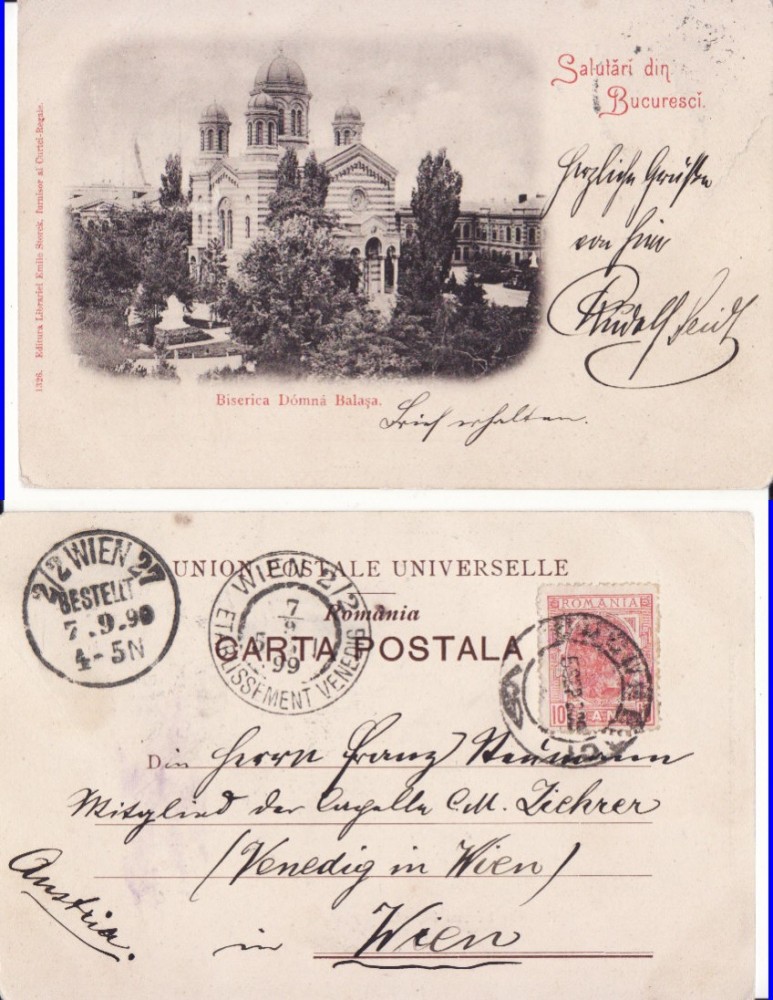 Salutări din
Bucuresci.
Herzliche Grüße
von hier
Rudolf
1326. Editura Librariei Emile Storck, furnisor al Curtei-Regale.
Biserica Dómna Balaşa.
Brief erhalten.
2/2 WIEN 27
BESTELLT
7.9.99
4-5N
UNION POSTALE UNIVERSELLE
WIEN 2/2
7
9
99
ETABLISSEMENT VENEDIG
România
CARTA POSTALA
ROMANIA
10
BANI
Din Herrn Franz Neumann
Mitglied der Capelle C. M. Ziehrer
(Venedig in Wien)
Austria.
in Wien